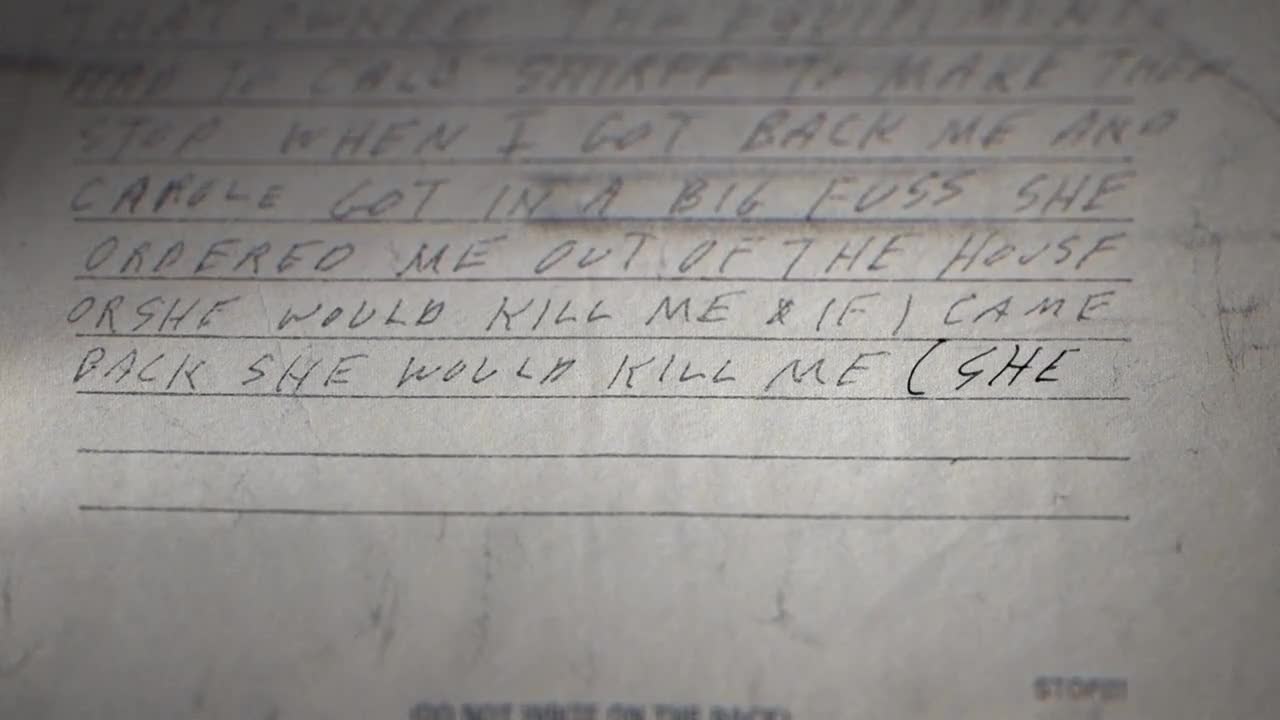 THAT OWNED THE EQUIPMENT
HAD TO CALD SHIRFF TO MAKE THEM
STOP WHEN I GOT BACK ME AND
CAROLE GOT IN A BIG FUSS SHE
ORDERED ME OUT OF THE HOUSE
ORSHE WOULD KILL ME & IF I CAME
BACK SHE WOULD KILL ME (SHE
STOP!!!
(DO NOT WRITE ON THE BACK)